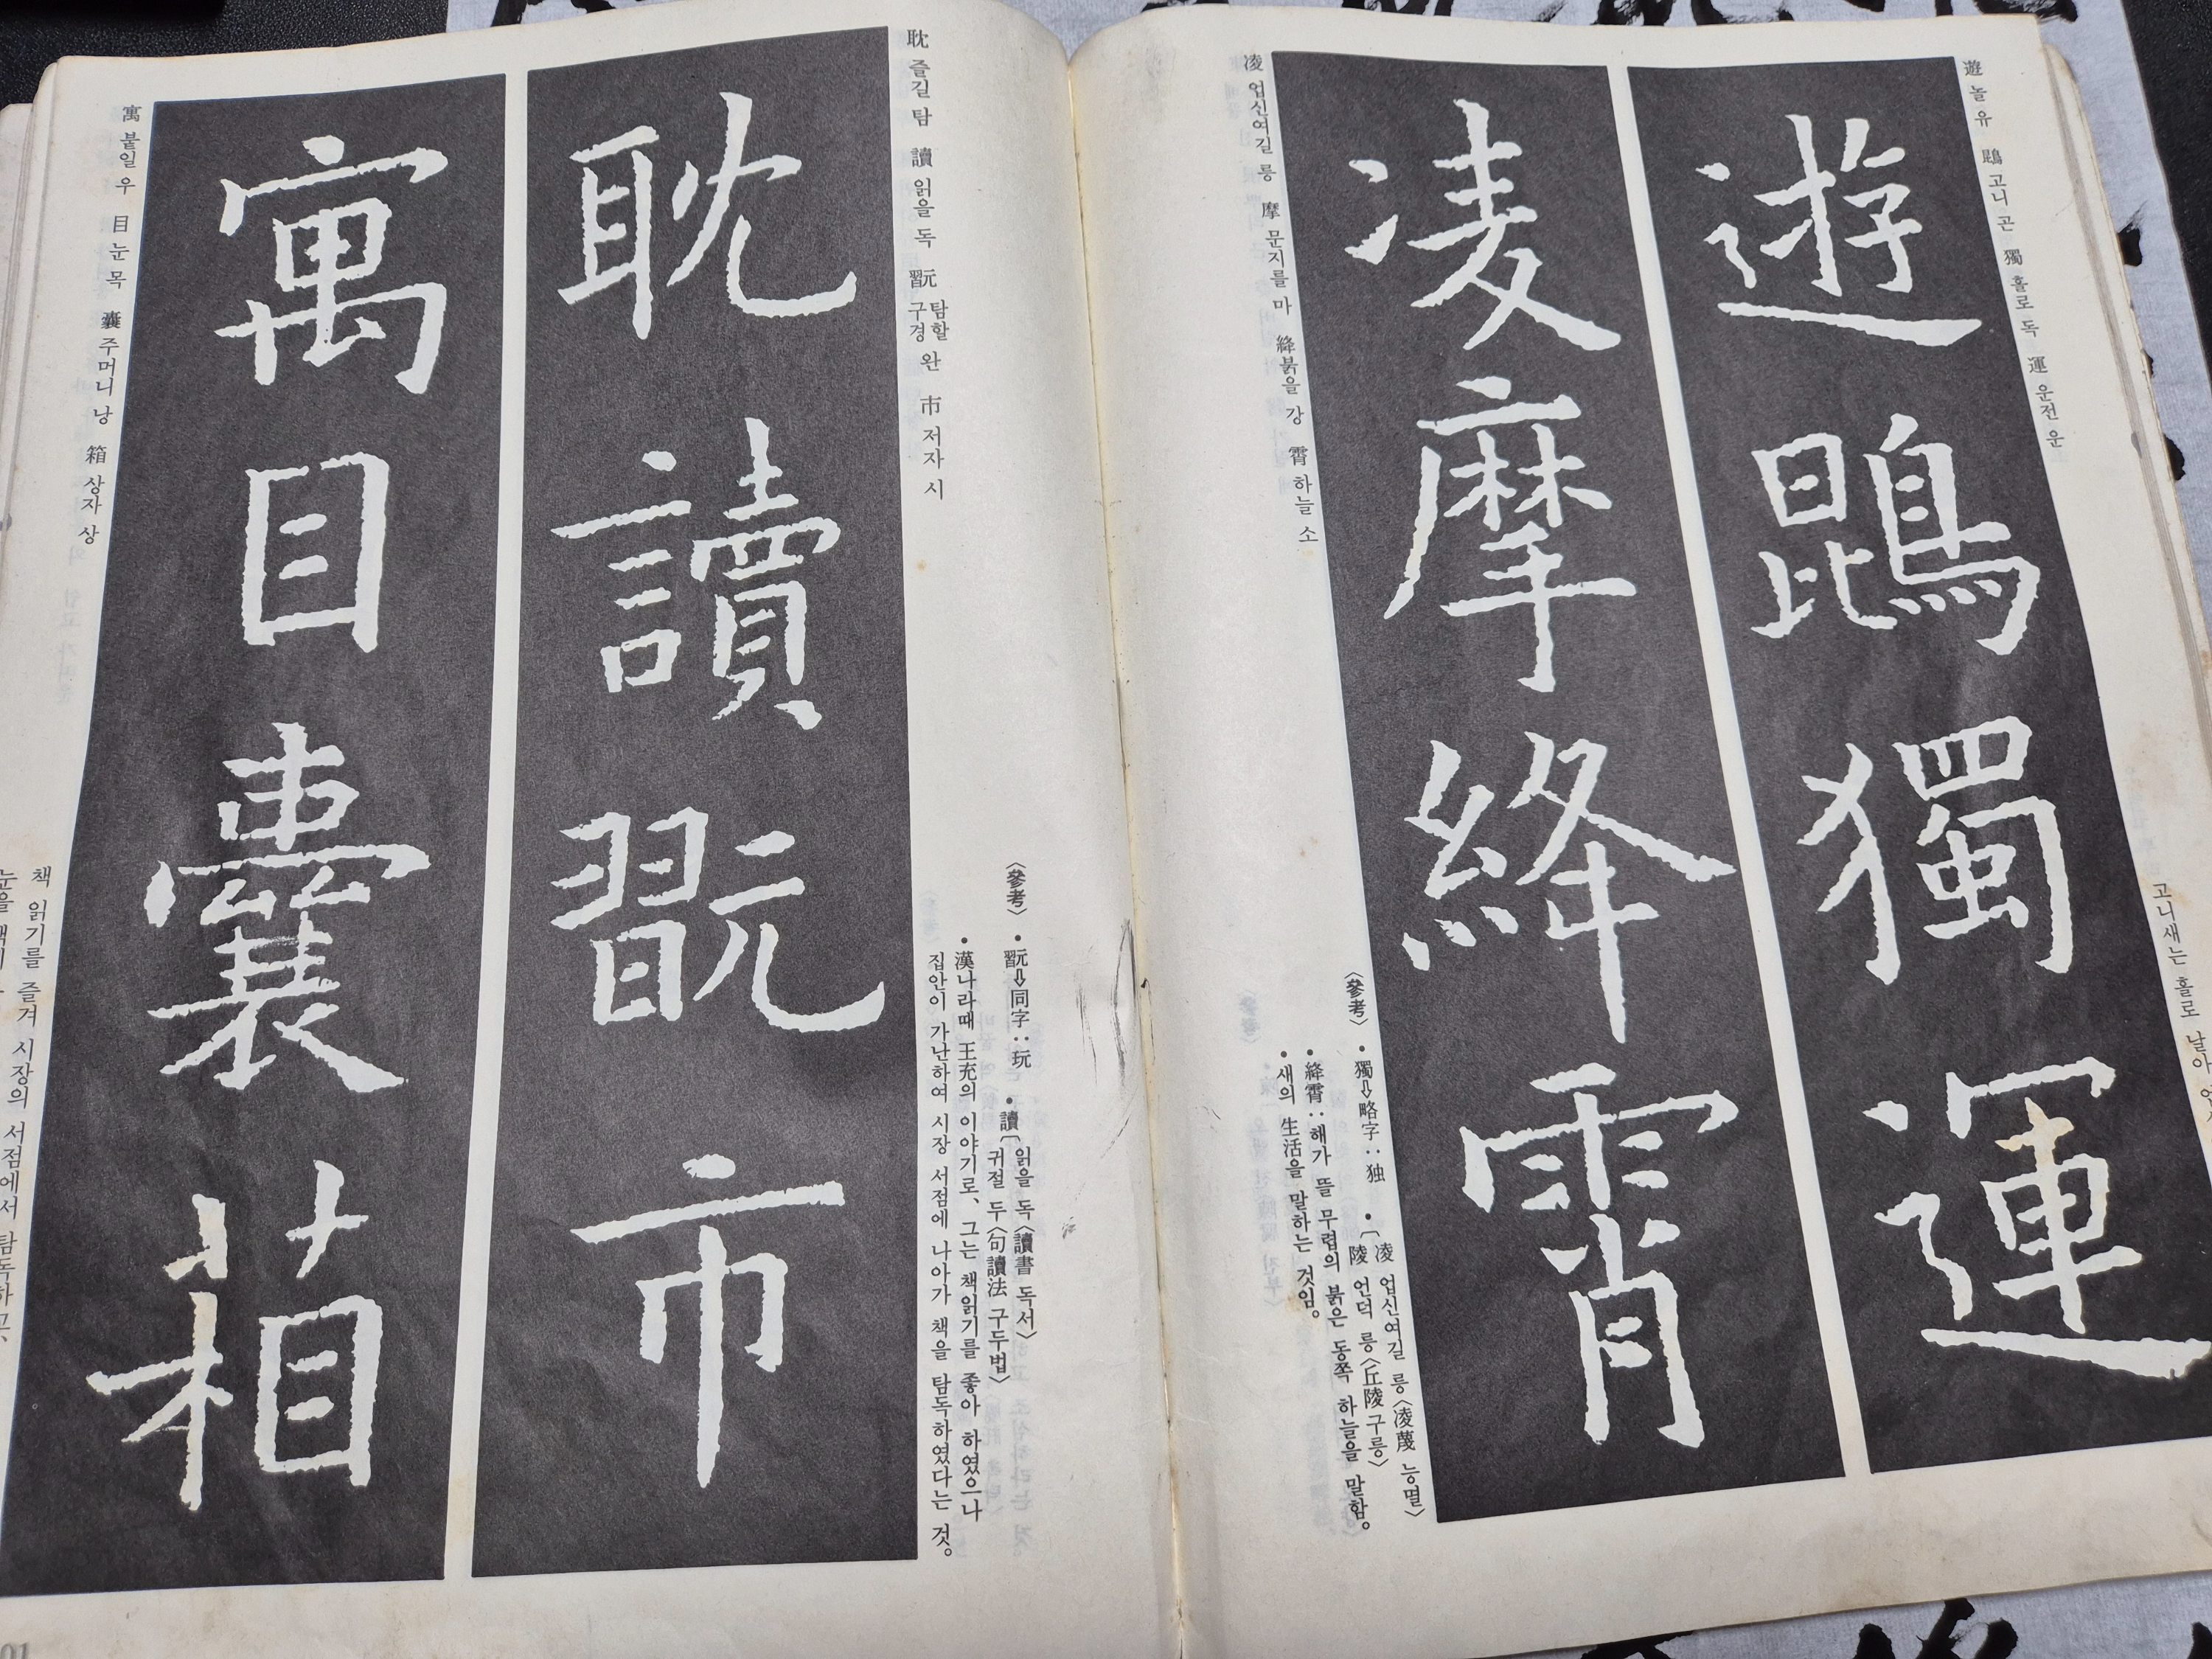 遊 놀 유 鵾 고니 곤 獨 홀로 독 運 운전 운
遊鵾獨運
凌摩絳霄
凌 업신여길 릉 摩 문지를 마 絳 붉을 강 霄 하늘 소
고니새는 홀로 날아
〈參考〉 • 獨⇩略字‥独 • 〔凌 업신여길 릉〈凌蔑 능멸〉
陵 언덕 릉〈丘陵 구릉〉
• 絳霄‥해가 뜰 무렵의 붉은 동쪽 하늘을 말함。
• 새의 生活을 말하는 것임。
耽 즐길 탐 讀 읽을 독 翫 탐할 구경 완 市 저자 시
耽讀翫市
寓目囊箱
寓 붙일 우 目 눈 목 囊 주머니 낭 箱 상자 상
〈參考〉 • 翫⇩同字‥玩 • 讀〔읽을 독〈讀書 독서〉
귀절 두〈句讀法 구두법〉
• 漢나라때 王充의 이야기로、그는 책읽기를 좋아 하였으나
집안이 가난하여 시장 서점에 나아가 책을 탐독하였다는 것。
책 읽기를 즐겨 시장의 서점에서 탐독하고、
01